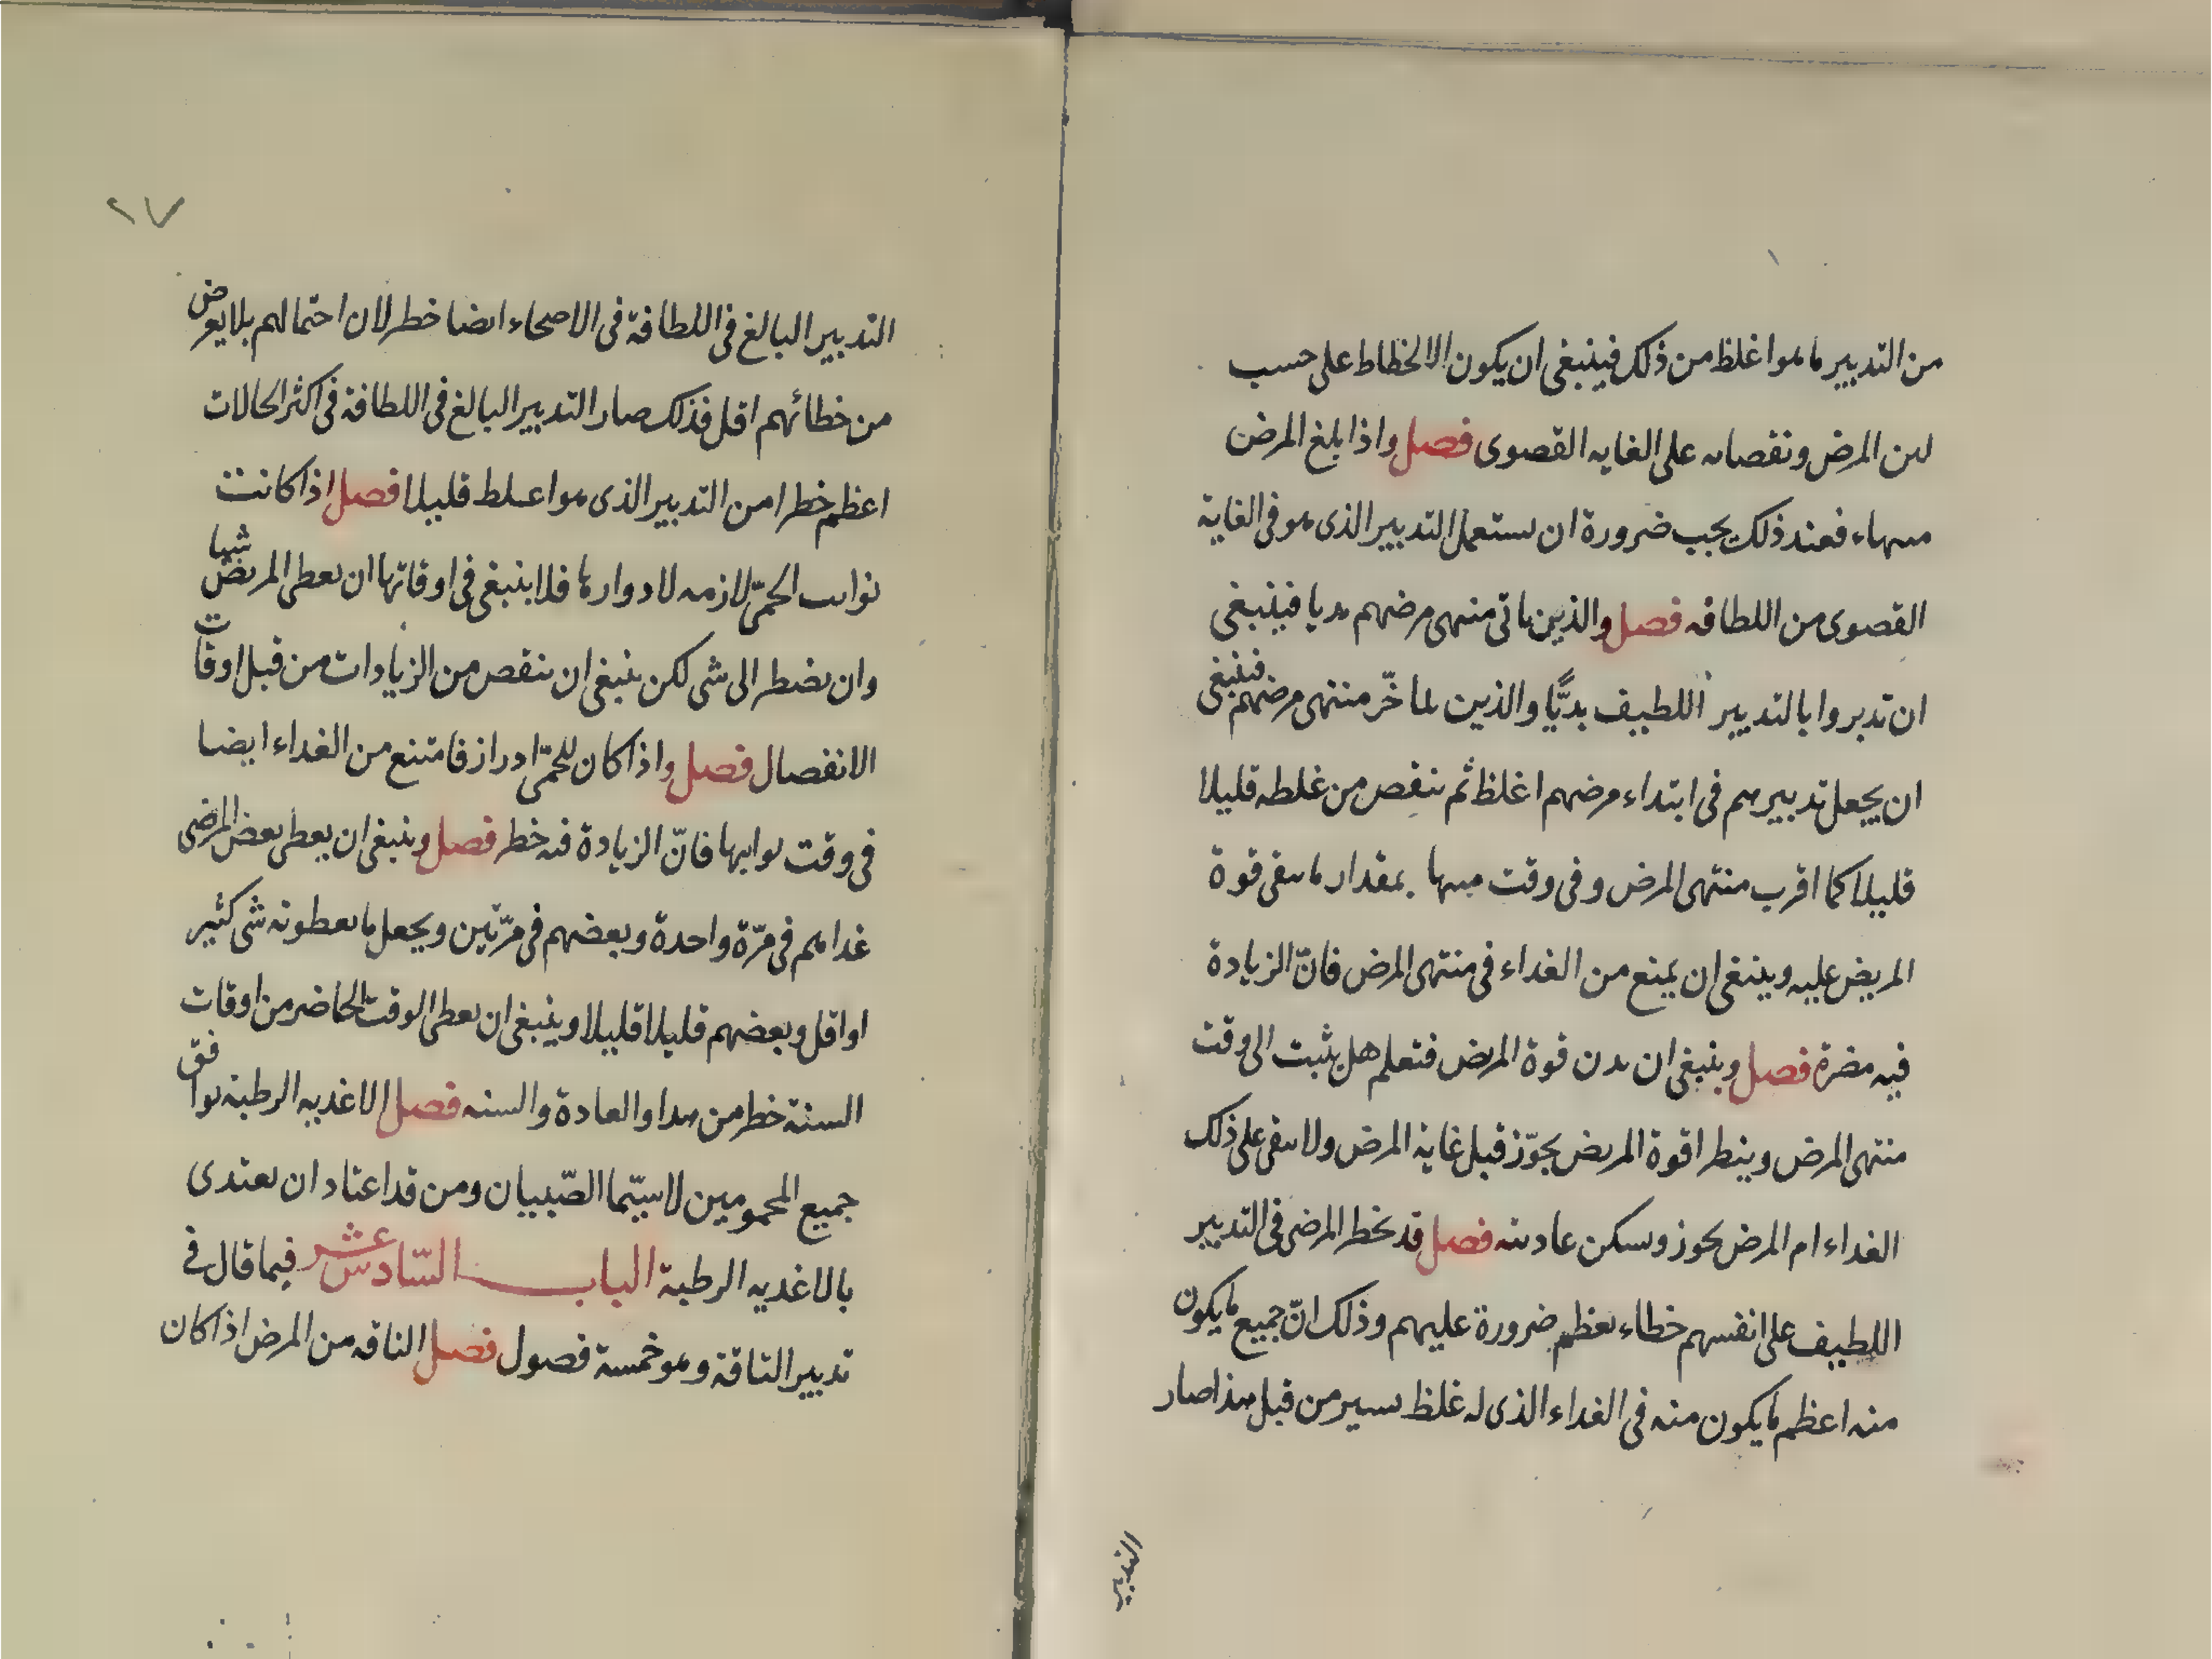 من التدبير ما هو اغلظ من ذلك فينبغى ان يكون الانحطاط على حسب
لين المرض ونقصانه على الغايه القصوى فصل واذا بلغ المرض
منتهاه فعند ذلك يجب ضرورة ان يستعمل التدبير الذى هو فى الغاية
القصوى من اللطافه فصل والذين ياتى منتهى مرضهم بديا فينبغى
ان تدبروا بالتدبير اللطيف بديًّا والذين يتاخّر منتهى مرضهم فينبغى
ان يجعل تدبيرهم فى ابتداء مرضهم اغلظ ثم ينقص من غلظه قليلا
قليلا كما اقرب منتهى المرض وفى وقت منتهاه بمقدار ما يبقى قوة
المريض عليه وينبغى ان يمنع من الغداء فى منتهى المرض فانّ الزيادة
فيه مضرة فصل وينبغى ان يدن قوة المريض فتعلم هل يثبت الى وقت
منتهى المرض وينظر اقوة المريض يجوّز قبل غاية المرض ولا يبقى على ذلك
الغداء ام المرض يحوز ويسكن عاديته فصل قد يخطر المرضى فى التدبير
اللطيف على انفسهم خطاء يعظم ضرورة عليهم وذلك انّ جميع ما يكون
منه اعظم ما يكون منه فى الغداء الذى له غلظ يسير من قبل هذا صار
التدبير
٢٧
التدبير البالغ فى اللطافة فى الاصحاء ايضا خطر لان احتمالهم بلا يعرض
من خطائهم اقل فذلك صار التدبير البالغ فى اللطافة فى اكثر الحالات
اعظم خطرا من التدبير الذى هو اغلظ قليلا فصل اذا كانت
نوايب الحمّى لازمه لادوارها فلا ينبغى فى اوقاتها ان يعطى المريض شيا
وان يضطر الى شى لكن ينبغى ان ينقص من الزيادات من قبل اوقات
الانفصال فصل واذا كان للحمّى ادوار ازفا متنع من الغداء ايضا
فى وقت نوايبها فانّ الزيادة فيه خطر فصل وينبغى ان يعطى بعض المرضى
غداهم فى مرّة واحدة وبعضهم فى مرّتين ويجعل ما يعطونه شى كثير
او اقل وبعضهم قليلا قليلا وينبغى ان يعطى الوقت الحاضر من اوقات
السنة خطر من هدا والعادة والسنه فصل الاغديه الرطبة توافق
جميع المحمومين لا سيّما الصّبيان ومن قد اعتاد ان يعتدى
بالاغديه الرطبة الباب السّادس عشر فيما قال فى
تدبير الناقة وهو خمسة فصول فصل الناقه من المرض اذا كان